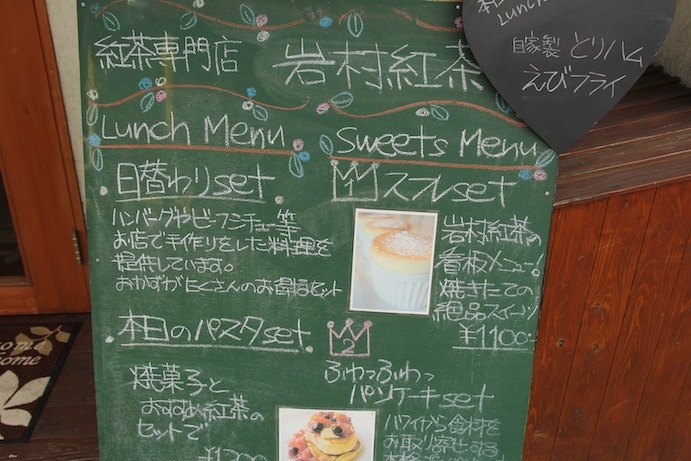 紅茶専門店
岩村紅茶
Lunch
自家製 とりハム
えびフライ
Lunch Menu
日替わりset
ハンバーグやビーフシチュー等
お店で手作りをした料理を
提供しています。
おかずがたくさんのお食事セット
本日のパスタset
焼菓子と
おすすめ紅茶の
セットで
Sweets Menu
1 スフレset
岩村紅茶の
看板メニュー!
焼きたての
絶品スイーツ!
¥1100-
2
ふわっふわっ
パンケーキset
ハワイから食材を
お取り寄せする
home